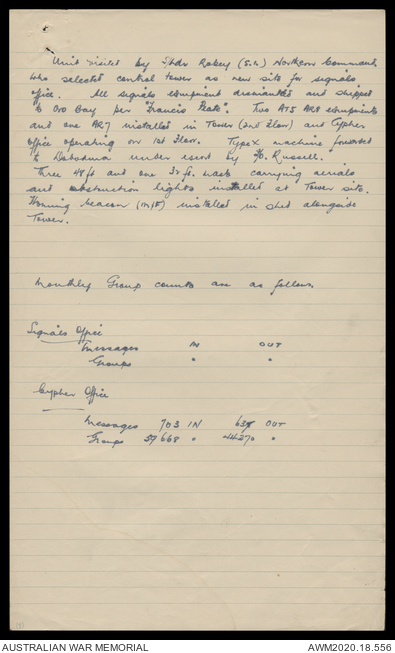 Unit visited by S/Ldr Rokey (S.O.) Northern Command
who selected control tower as new site for signals
office. All signals equipment dismantled and shipped
to Oro Bay per "Francis Peats". Two AT5 AR8 equipments
and one AR7 installed in Tower (2nd Floor) and Cypher
office operating on 1st Floor. TypeX machine forwarded
to Dobodura under escort by F/O. Russell.
Three 48ft and one 32ft. masts carrying aerials
and obstruction lights installed at Tower site.
Homing beacon (M/F) installed in shed alongside
Tower.
Monthly Group counts are as follows
Signals Office
Messages IN OUT
Groups " "
Cypher Office
Messages 703 IN OUT
Groups 57668 " 44270 "
AUSTRALIAN WAR MEMORIAL AWM2020.18.556